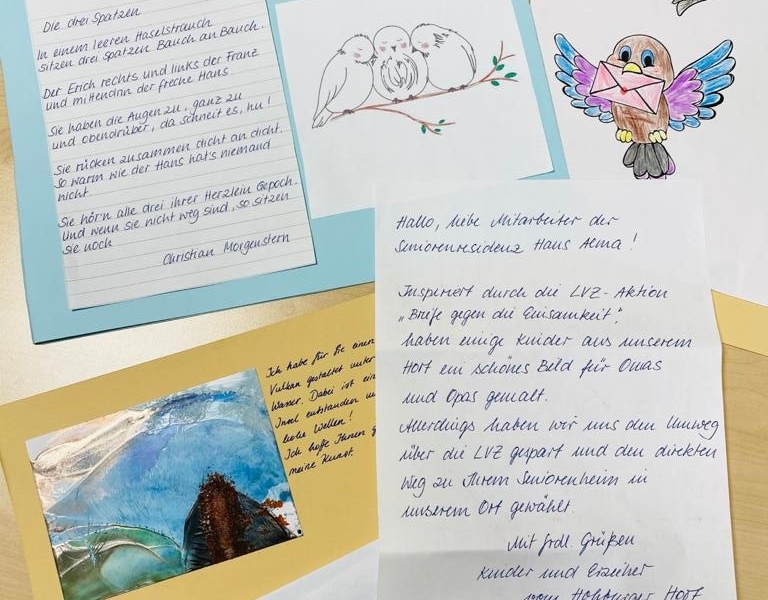 Die drei Spatzen
In einem leeren Haselstrauch
sitzen drei Spatzen Bauch an Bauch.
Der Erich rechts und links der Franz
und mittendrin der freche Hans
Sie haben die Augen zu, ganz zu
und obendrüber, da schneit es, hu!
Sie rücken zusammen dicht an dicht.
So warm wie der Hans hat's niemand
nicht
Sie hör'n alle drei ihrer Herzlein Gepoch.
Und wenn sie nicht weg sind, so sitzen
sie noch
Christian Morgenstern
Ich habe für Sie einen
Vulkan gestaltet unter
Wasser. Dabei ist ein
Insel entstanden
hohe Wellen!
Ich hoffe Ihnen
meine Kunst.
Hallo, liebe Mitarbeiter der
Seniorenresidenz Haus Alma!
Inspiriert durch die LVZ-Aktion
„Briefe gegen die Einsamkeit"
haben einige Kinder aus unserem
Hort ein schönes Bild für Omas
und Opas gemalt.
Allerdings haben wir uns den Umweg
über die LVZ gespart und den direkten
Weg zu Ihrem Seniorenheim in
unserem Ort gewählt.
Mit frdl. Grüßen
Kinder und Erzieher
vom Hohburger Hort